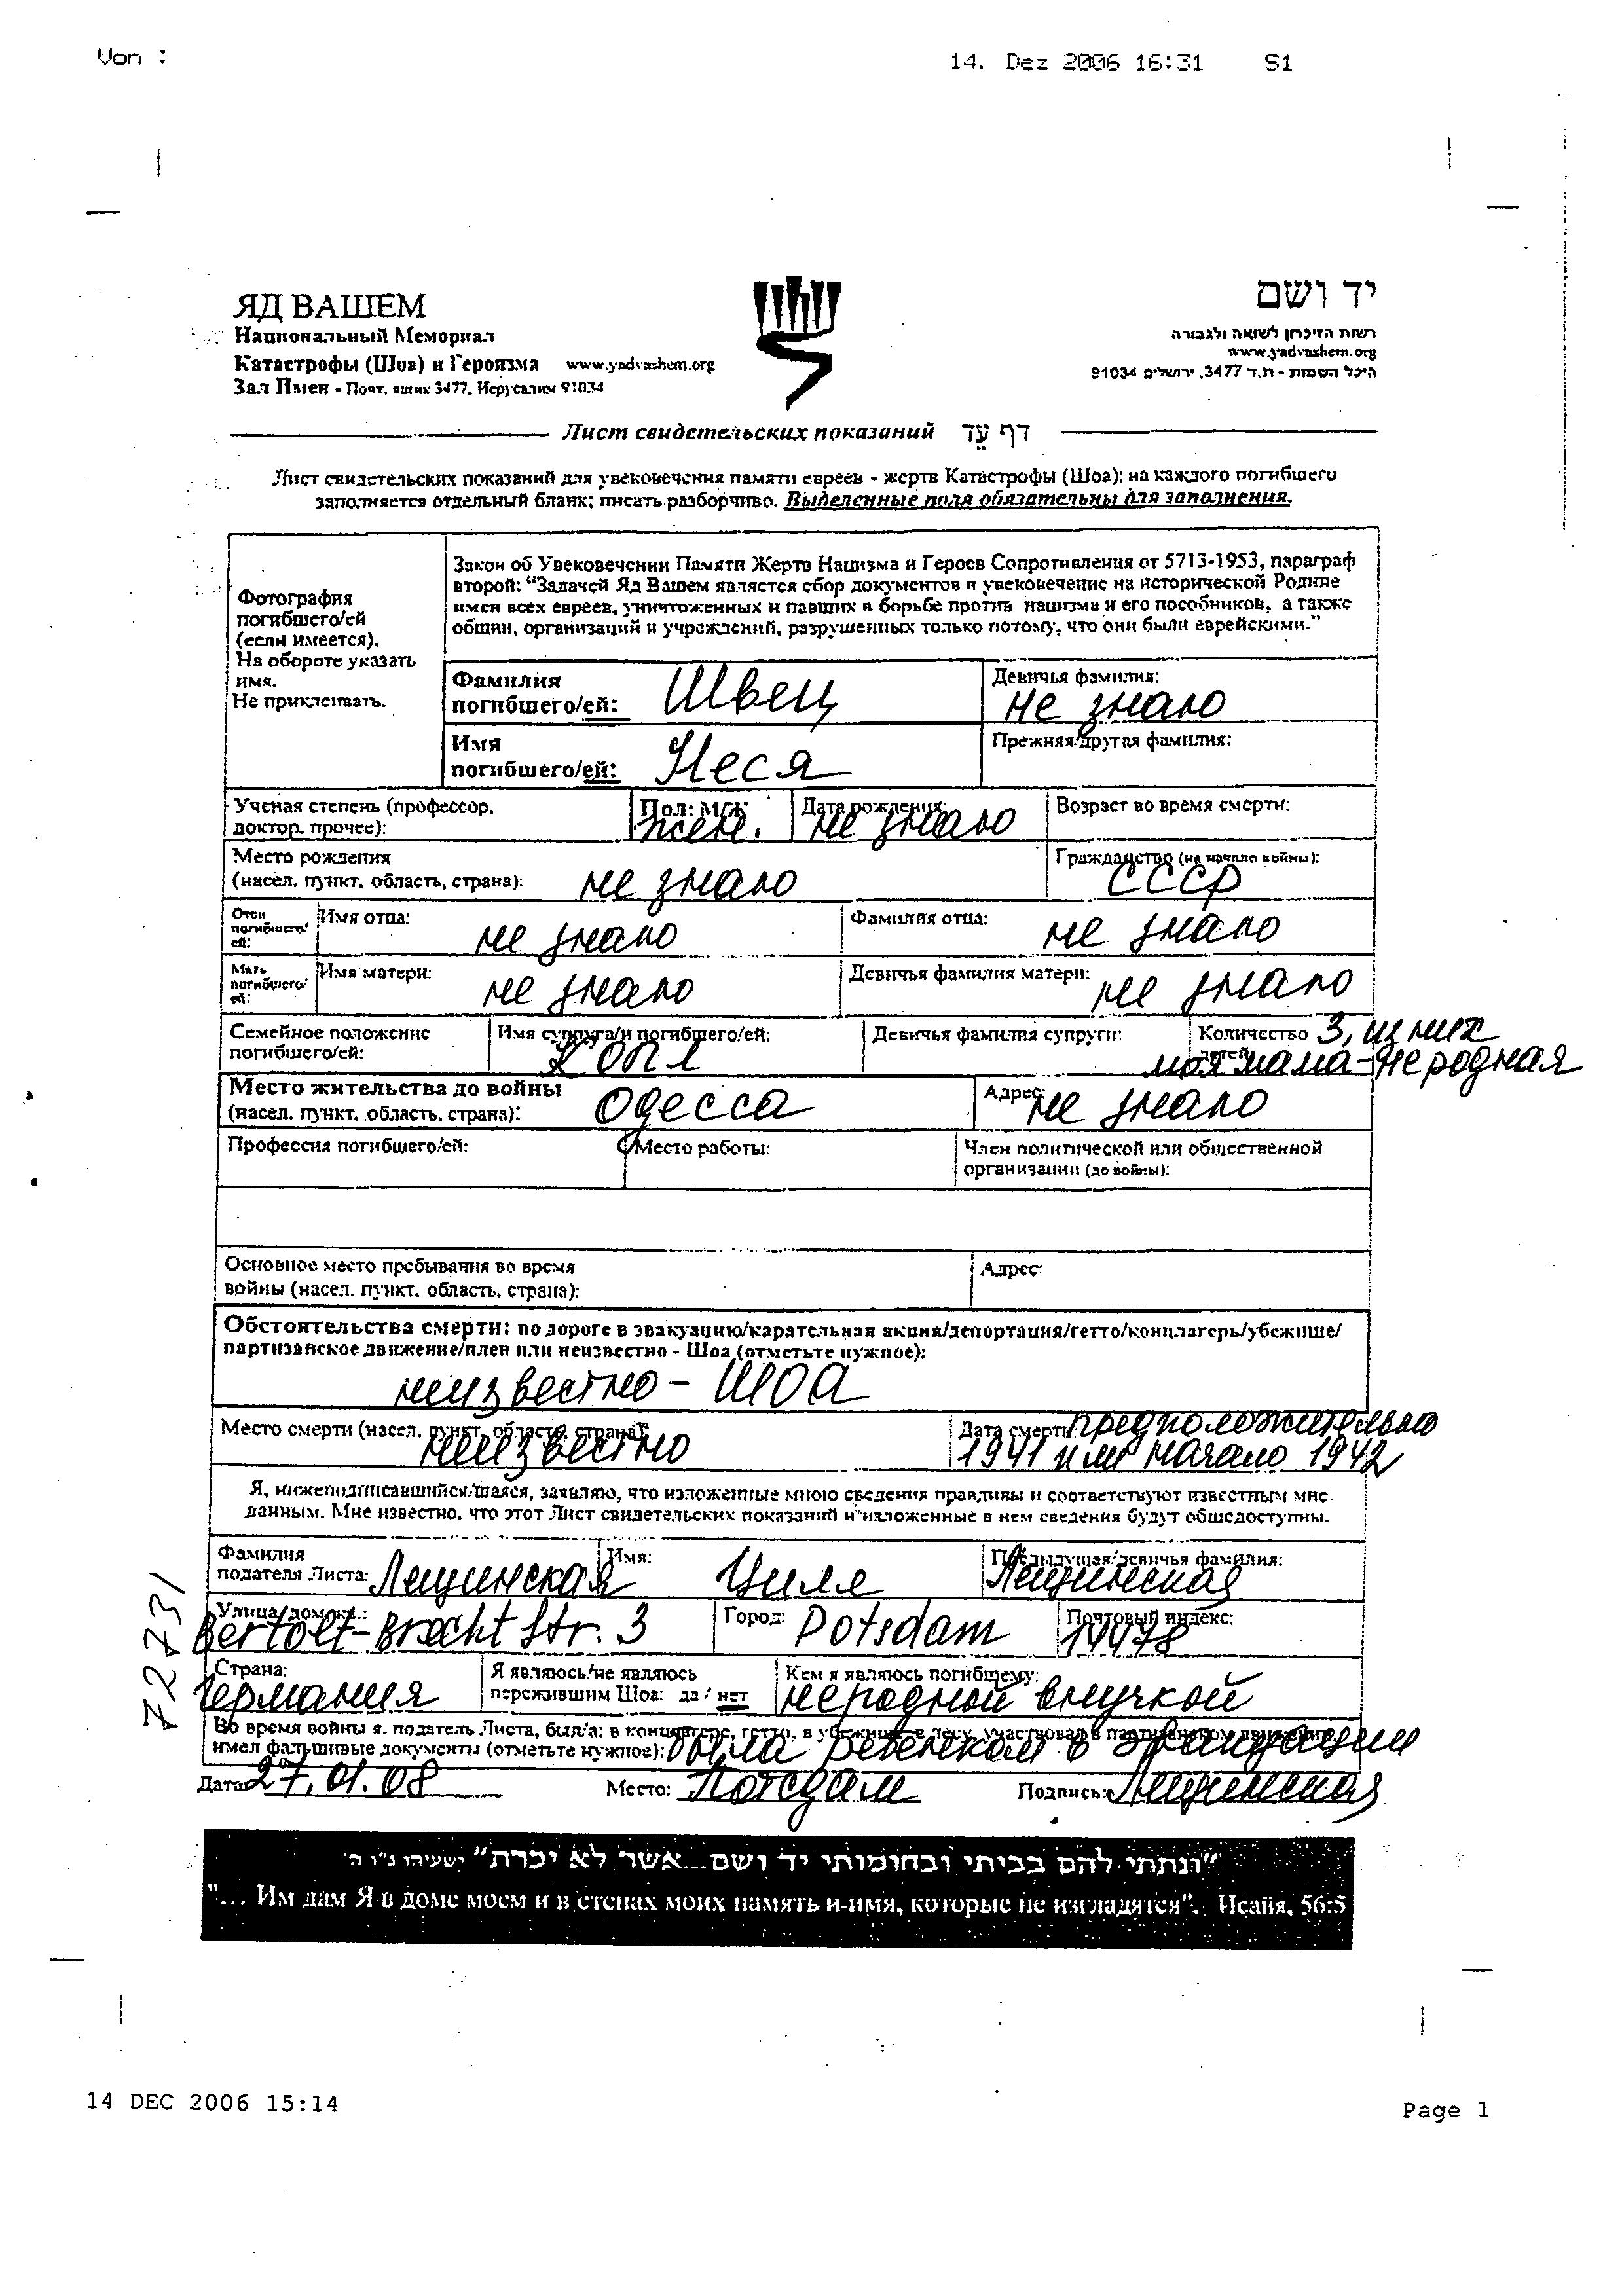 Von :
14. Dez 2006 16:31 S1
ЯД ВАШЕМ
Национальный Мемориал
Катастрофы (Шоа) и Героизма www.yadvashem.org
Зал Имен - Почт. ящик 3477, Иерусалим 91034
יד ושם
רשות הזיכרון לשואה ולגבורה
www.yadvashem.org
היכל השמות - ת.ד 3477, ירושלים 91034
Лист свидетельских показаний דף עֵד
Лист свидетельских показаний для увековечения памяти евреев - жертв Катастрофы (Шоа); на каждого погибшего
заполняется отдельный бланк; писать разборчиво. Выделенные поля обязательны для заполнения.
Фотография
погибшего/ей
(если имеется).
На обороте указать
имя.
Не приклеивать.
Закон об Увековечении Памяти Жертв Нацизма и Героев Сопротивления от 5713-1953, параграф
второй: "Задачей Яд Вашем является сбор документов и увековечение на исторической Родине
имен всех евреев, уничтоженных и павших в борьбе против нацизма и его пособников, а также
общин, организаций и учреждений, разрушенных только потому, что они были еврейскими."
Фамилия
погибшего/ей: Швец
Девичья фамилия:
не знаю
Имя
погибшего/ей: Неся
Прежняя/другая фамилия:
Ученая степень (профессор,
доктор, прочее):
Пол: М/Ж
жен.
Дата рождения:
не знаю
Возраст во время смерти:
Место рождения
(насел. пункт, область, страна): не знаю
Гражданство (на начало войны):
СССР
Отец
погибшего/
ей:
Имя отца:
не знаю
Фамилия отца:
не знаю
Мать
погибшего/
ей:
Имя матери:
не знаю
Девичья фамилия матери:
не знаю
Семейное положение
погибшего/ей:
Имя супруга/и погибшего/ей:
Хопл
Девичья фамилия супруги:
Количество 3, из них
детей: моя мама-неродная
Место жительства до войны
(насел. пункт, область, страна): Одесса
Адрес:
не знаю
Профессия погибшего/ей:
Место работы:
Член политической или общественной
организации (до войны):
Основное место пребывания во время
войны (насел. пункт, область, страна):
Адрес:
Обстоятельства смерти: по дороге в эвакуацию/карательная акция/депортация/гетто/концлагерь/убежище/
партизанское движение/плен или неизвестно - Шоа (отметьте нужное):
неизвестно - ШОА
Место смерти (насел. пункт, область, страна):
неизвестно
Дата смерти: предположительно
1941 или начало 1942
Я, нижеподписавшийся/шаяся, заявляю, что изложенные мною сведения правдивы и соответствуют известным мне
данным. Мне известно, что этот Лист свидетельских показаний и изложенные в нем сведения будут общедоступны.
Фамилия
подателя Листа: Лещинская
Имя:
Циля
Предыдущая/девичья фамилия:
Лещинская
Улица/дом/кв.:
Bertolt-Brecht Str. 3
Город: Potsdam
Почтовый индекс:
14478
Страна:
Германия
Я являюсь/не являюсь
пережившим Шоа: да / нет
Кем я являюсь погибшему:
неродной внучкой
Во время войны я, податель Листа, был/а: в концлагере, гетто, в убежище, в лесу, участвовал в партизанском движении,
имел фальшивые документы (отметьте нужное): была ребенком в эвакуации
Дата 27.01.08 Место: Потсдам Подпись: Лещинская
"ונתתי להם בביתי ובחומותי יד ושם...אשר לא יכרת" ישעיהו נ"ו ה'
"... Им дам Я в доме моем и в стенах моих память и имя, которые не изгладятся". Исайя, 56:5
14 DEC 2006 15:14
Page 1